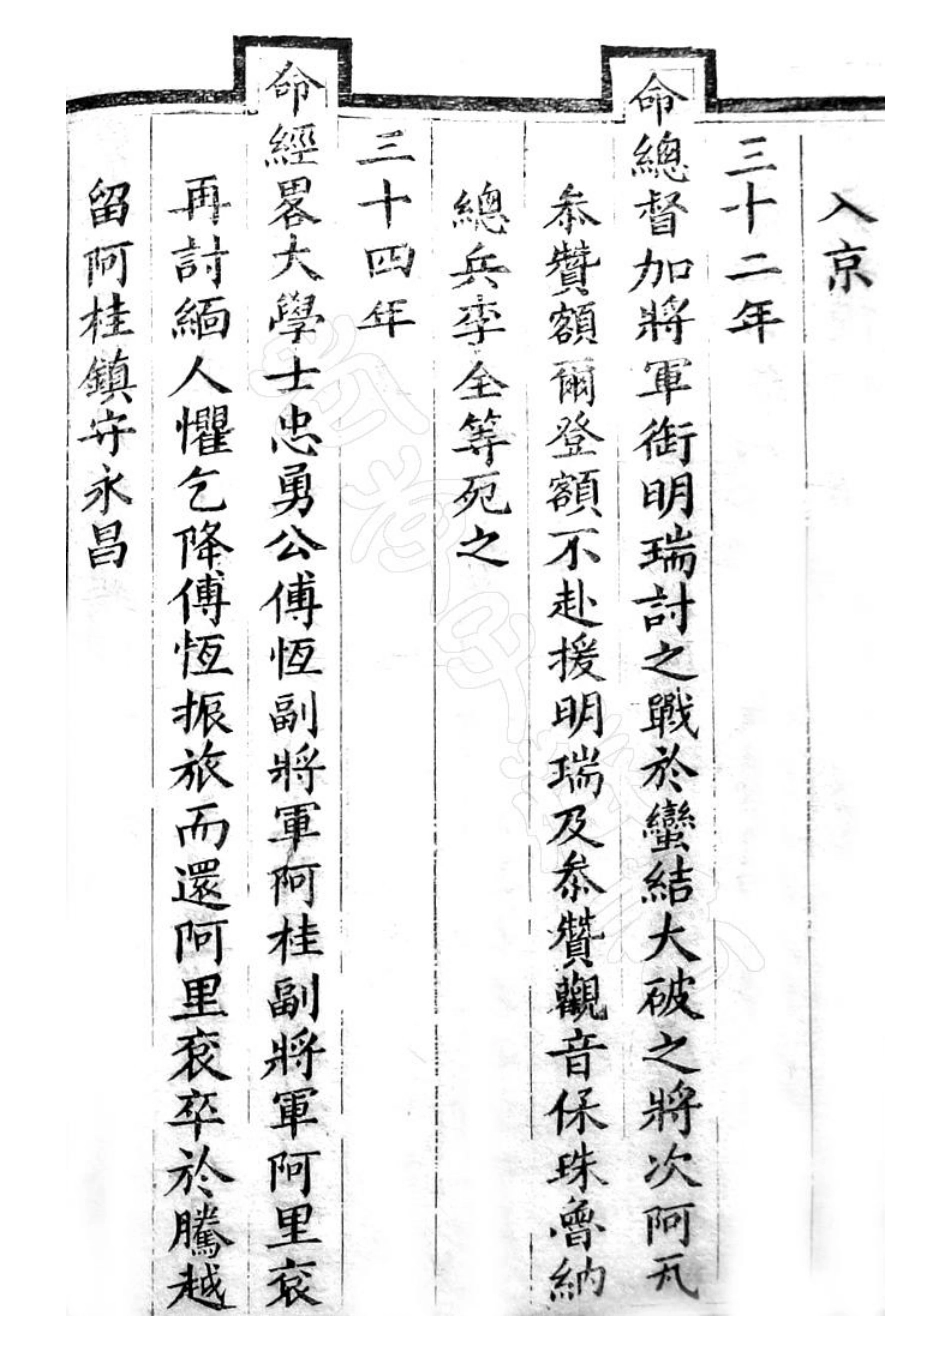 入京
三十二年
命總督加將軍銜明瑞討之戰於蠻結大破之將次阿瓦
叅贊額爾登額不赴援明瑞及叅贊觀音保珠魯納
總兵李全等死之
三十四年
命經畧大學士忠勇公傅恆副將軍阿桂副將軍阿里衮
再討緬人懼乞降傅恆振旅而還阿里衮卒於騰越
留阿桂鎮守永昌